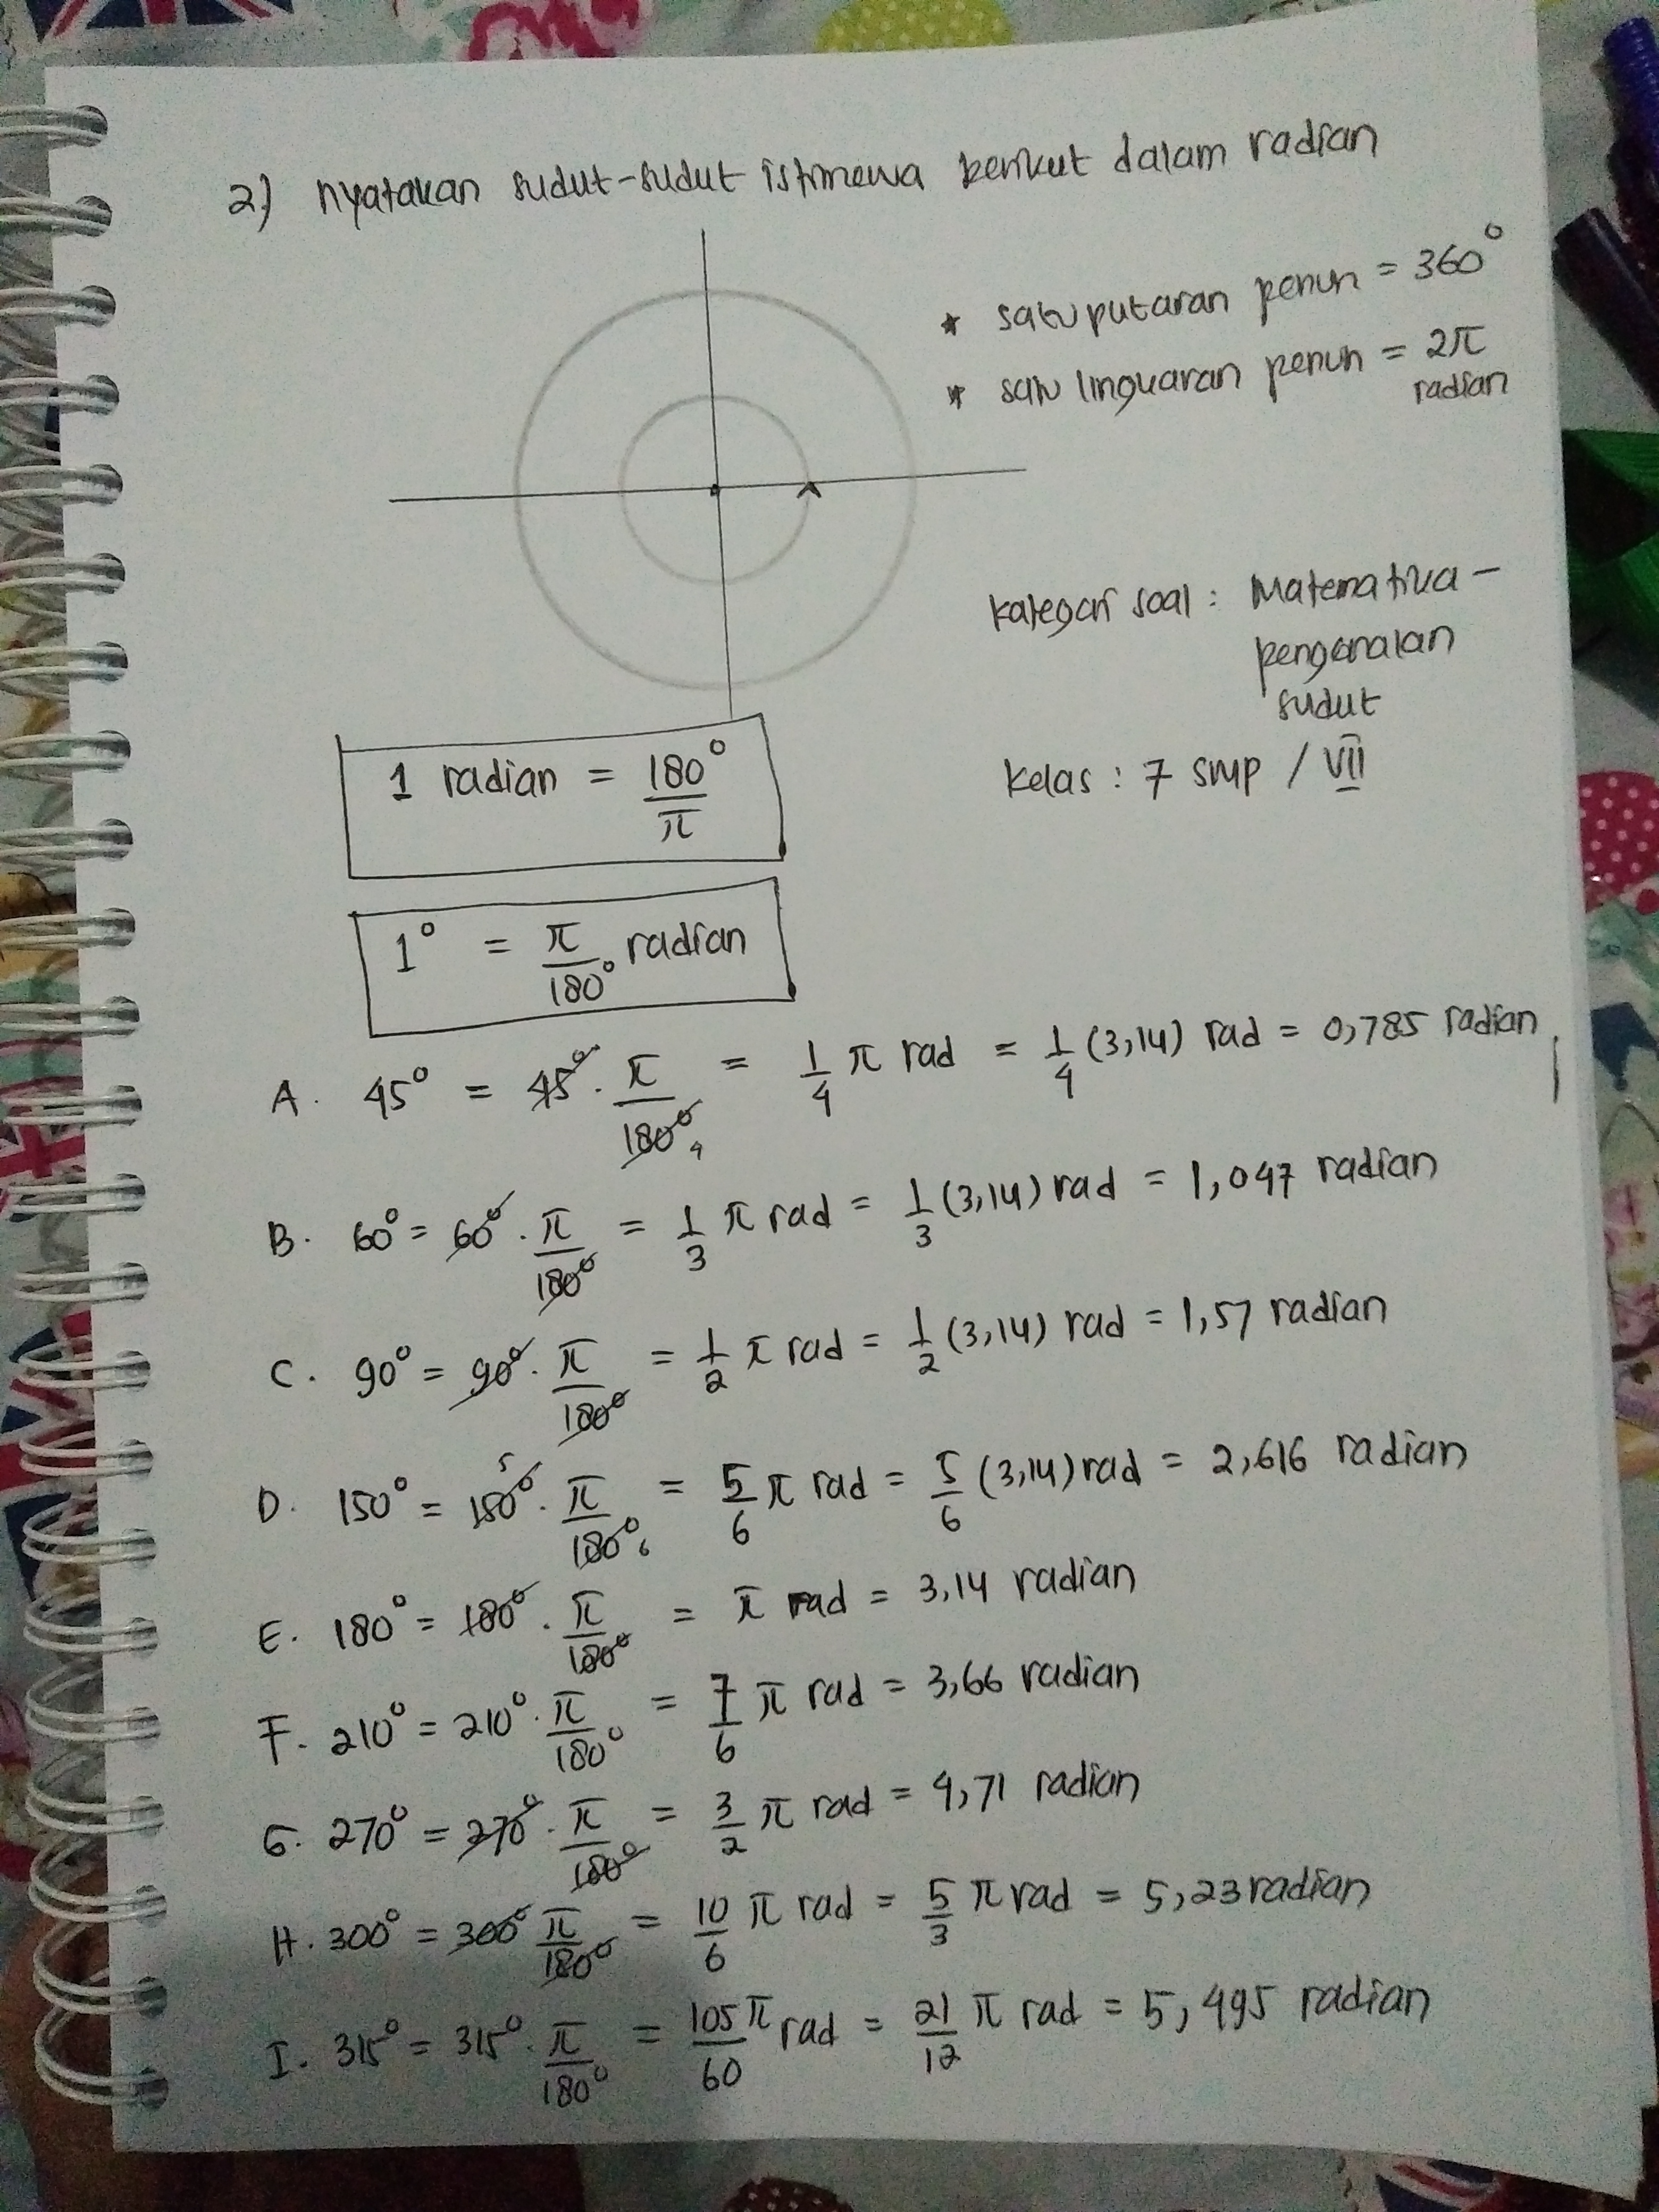 2) nyatakan sudut-sudut istimewa berikut dalam radian
* satu putaran penuh = 360°
* satu lingkaran penuh = 2π radian
kategori soal : Matematika -
pengenalan
sudut
kelas : 7 SMP / VII
1 radian = 180°/π
1° = π/180° radian
A. 45° = 45° . π/180° 4 = 1/4 π rad = 1/4 (3,14) rad = 0,785 radian
B. 60° = 60° . π/180° = 1/3 π rad = 1/3 (3,14) rad = 1,047 radian
C. 90° = 90° . π/180° = 1/2 π rad = 1/2 (3,14) rad = 1,57 radian
D. 150° = 150° 5 . π/180° 6 = 5/6 π rad = 5/6 (3,14) rad = 2,616 radian
E. 180° = 180° . π/180° = π rad = 3,14 radian
F. 210° = 210° . π/180° = 7/6 π rad = 3,66 radian
G. 270° = 270° . π/180° = 3/2 π rad = 4,71 radian
H. 300° = 300° π/180° = 10/6 π rad = 5/3 π rad = 5,23 radian
I. 315° = 315° . π/180° = 105/60 π rad = 21/12 π rad = 5,495 radian